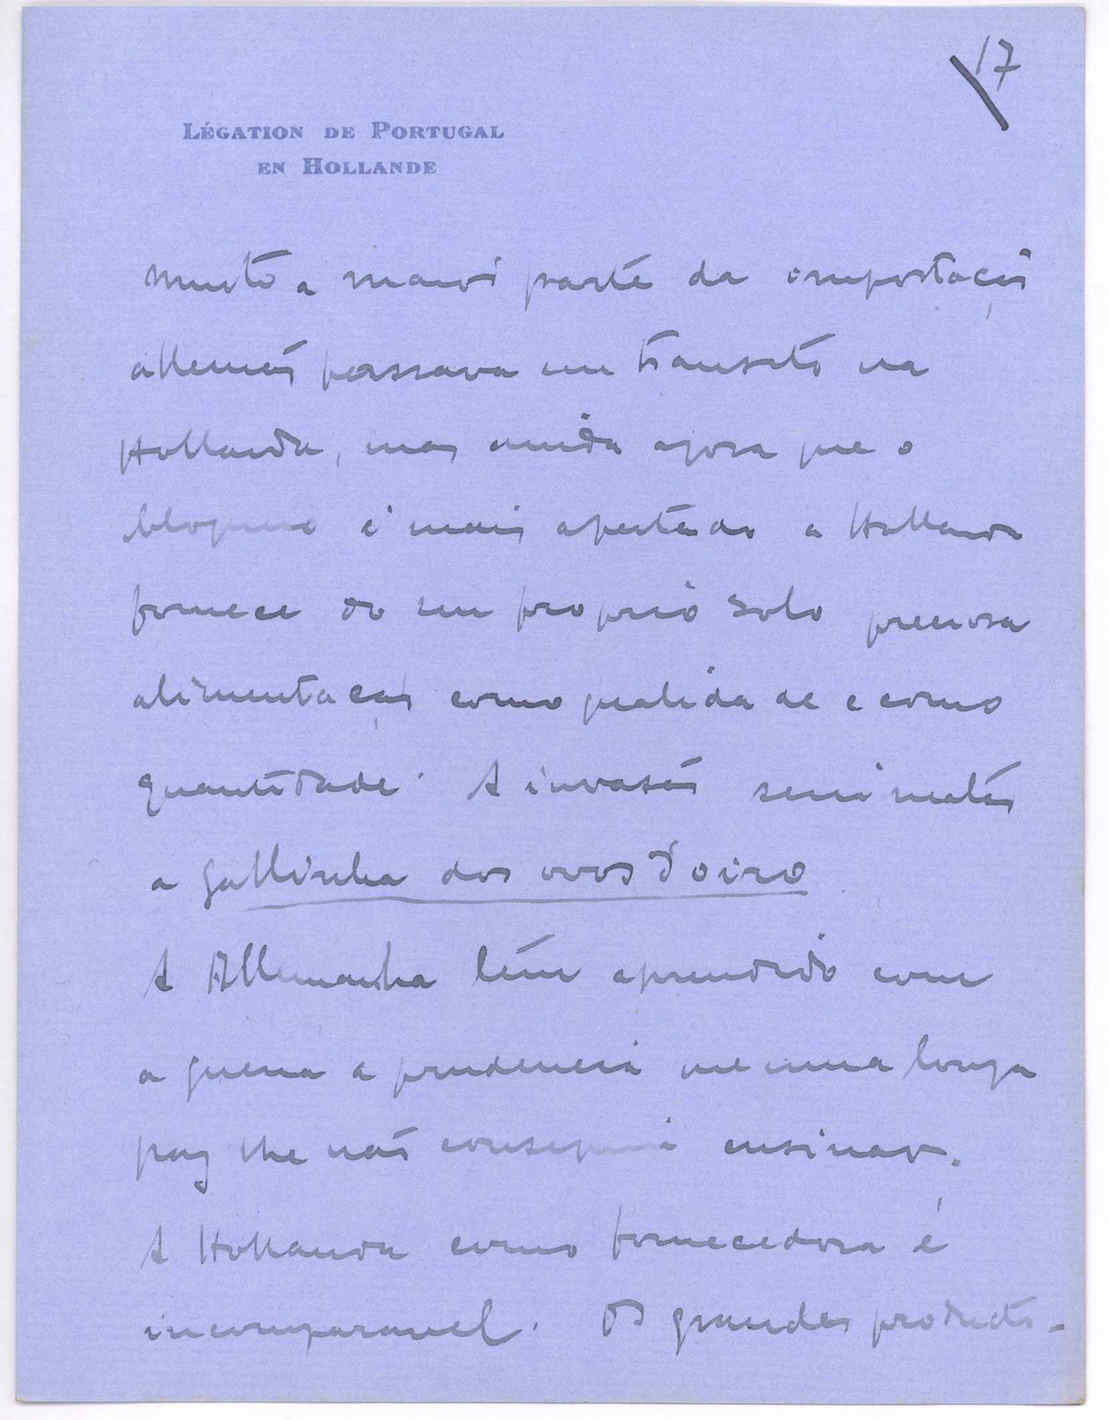 17
LÉGATION DE PORTUGAL
EN HOLLANDE
Muito a maior parte da importação
allemã passava em transito na
Hollanda, mas ainda agora que o
bloqueio é mais apertado a Hollanda
fornece do seu proprio solo preciosa
alimentação como qualidade e como
quantidade. A invasão seria matar
a gallinha dos ovos d'oiro
A Allemanha tem aprendido com
a guerra a prudencia que uma longa
paz lhe não conseguiu ensinar.
A Hollanda como fornecedora é
incomparavel. Os grandes producto-